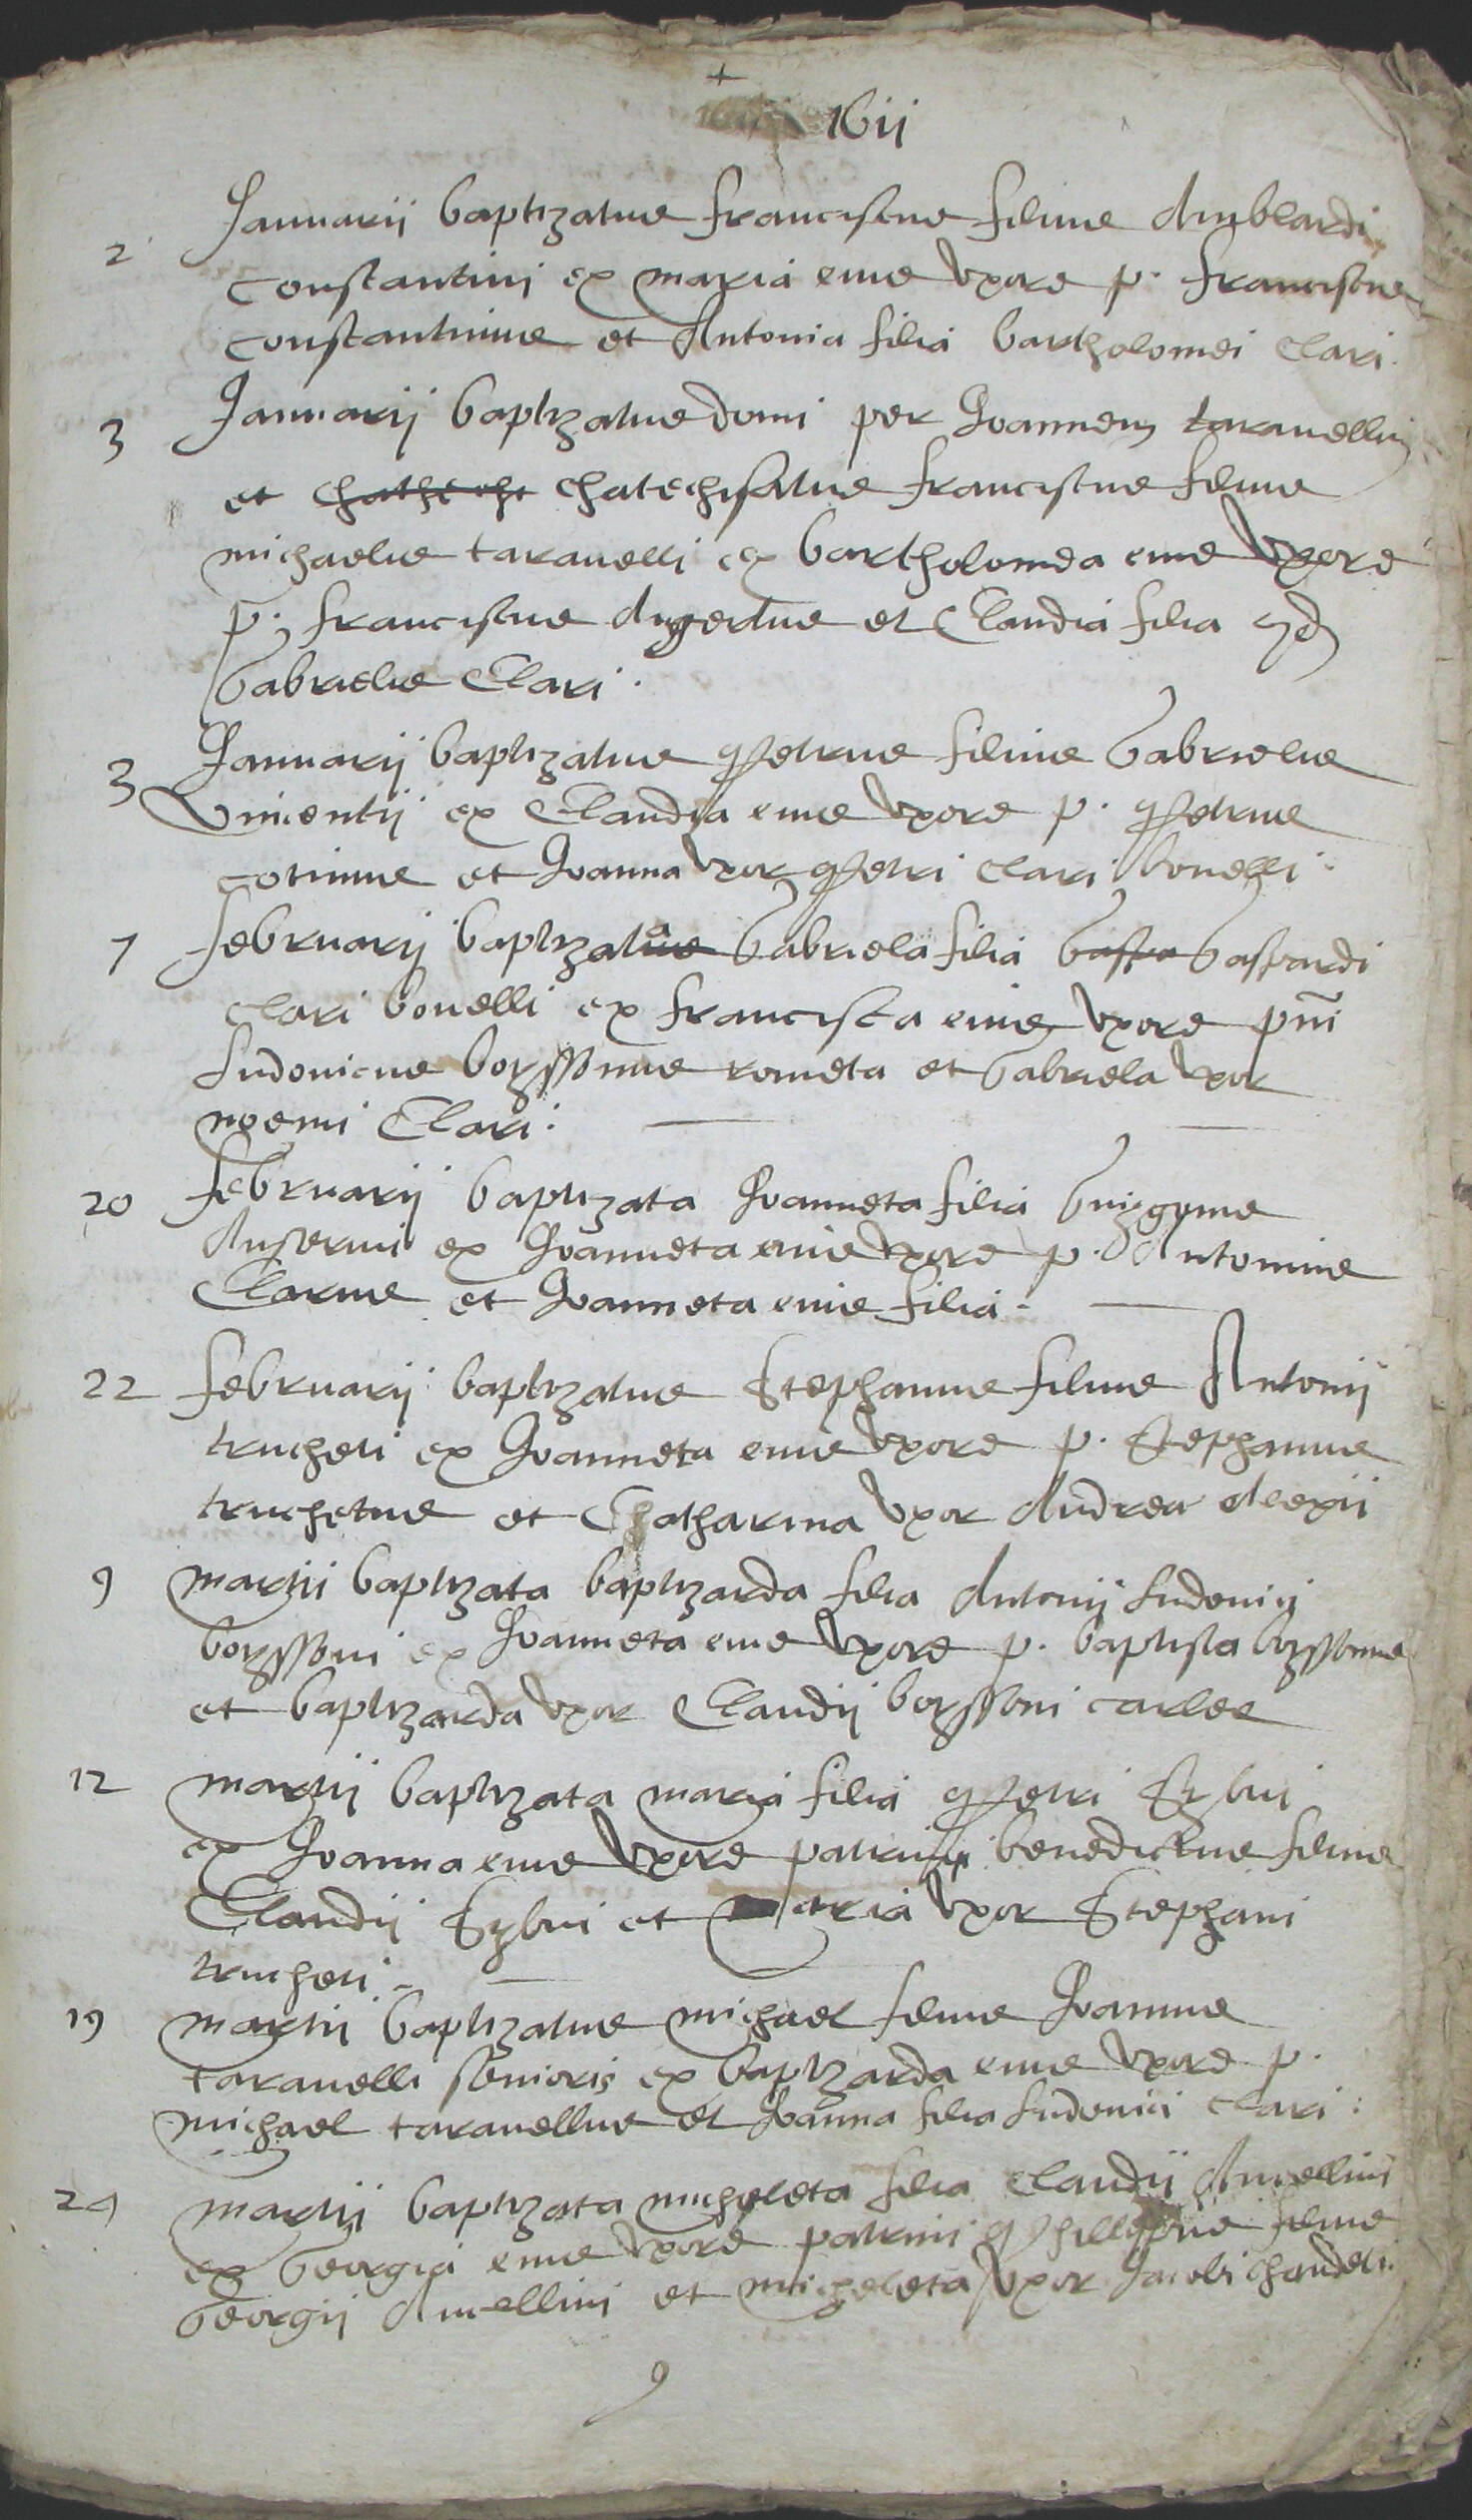 1611
2 Januarij baptizatus franciscus filius Amblardi
Constantini ex maria eius uxore p. franciscus
Constantinus et Antonia filia bartholomei Clari.
3 Januarij baptizatus domi per Joannem taravellum
et chathechi chatechisatus franciscus filius
michaelis taravelli ex bartholomea eius uxore
p. franciscus et Claudia filia qd
Gabrielis Clari.
3 Januarij baptizatus Petrus filius Gabrielis
Vincentij ex Claudia eius uxore p. Petrus
cotinus et Joanna uxor Petri Clari bonelli.
7 februarij baptizata Gabriela filia Gaspa Gaspardi
Clari bonelli ex francisca eius uxore pnĩ
Ludovicus boyssonus rometa et Gabriela uxor
noemi Clari.
20 februarij baptizata Joanneta filia
Anselmi ex Joanneta eius uxore p. Antonius
Clarus et Joanneta eius filia.
22 februarij baptizatus Stephanus filius Antonij
trucheti ex Joanneta eius uxore p. Stephanus
truchetus et Chatharina uxor Andrea alexii
9 martii baptizata baptizarda filia Antonij Ludovici
boyssoni ex Joanneta eius uxore p. baptista boyssonus
et baptizarda uxor Claudij boyssoni carles
12 martij baptizata maria filia Petri Sybui
ex Joanna eius uxore patrini benedictus filius
Claudij Sybui et uxor Stephani
trucheti.
19 martii baptizatus michael filius Joannis
taravelli senioris ex baptizarda eius uxore p.
michael taravellus et Joanna filia Ludovici Clari.
24 martij baptizata micheleta filia Claudij Ancellini
ex Georgia eius uxore patrini Phillipus filius
Georgij Ancellini et micheleta uxor Jacobi chaudeti.